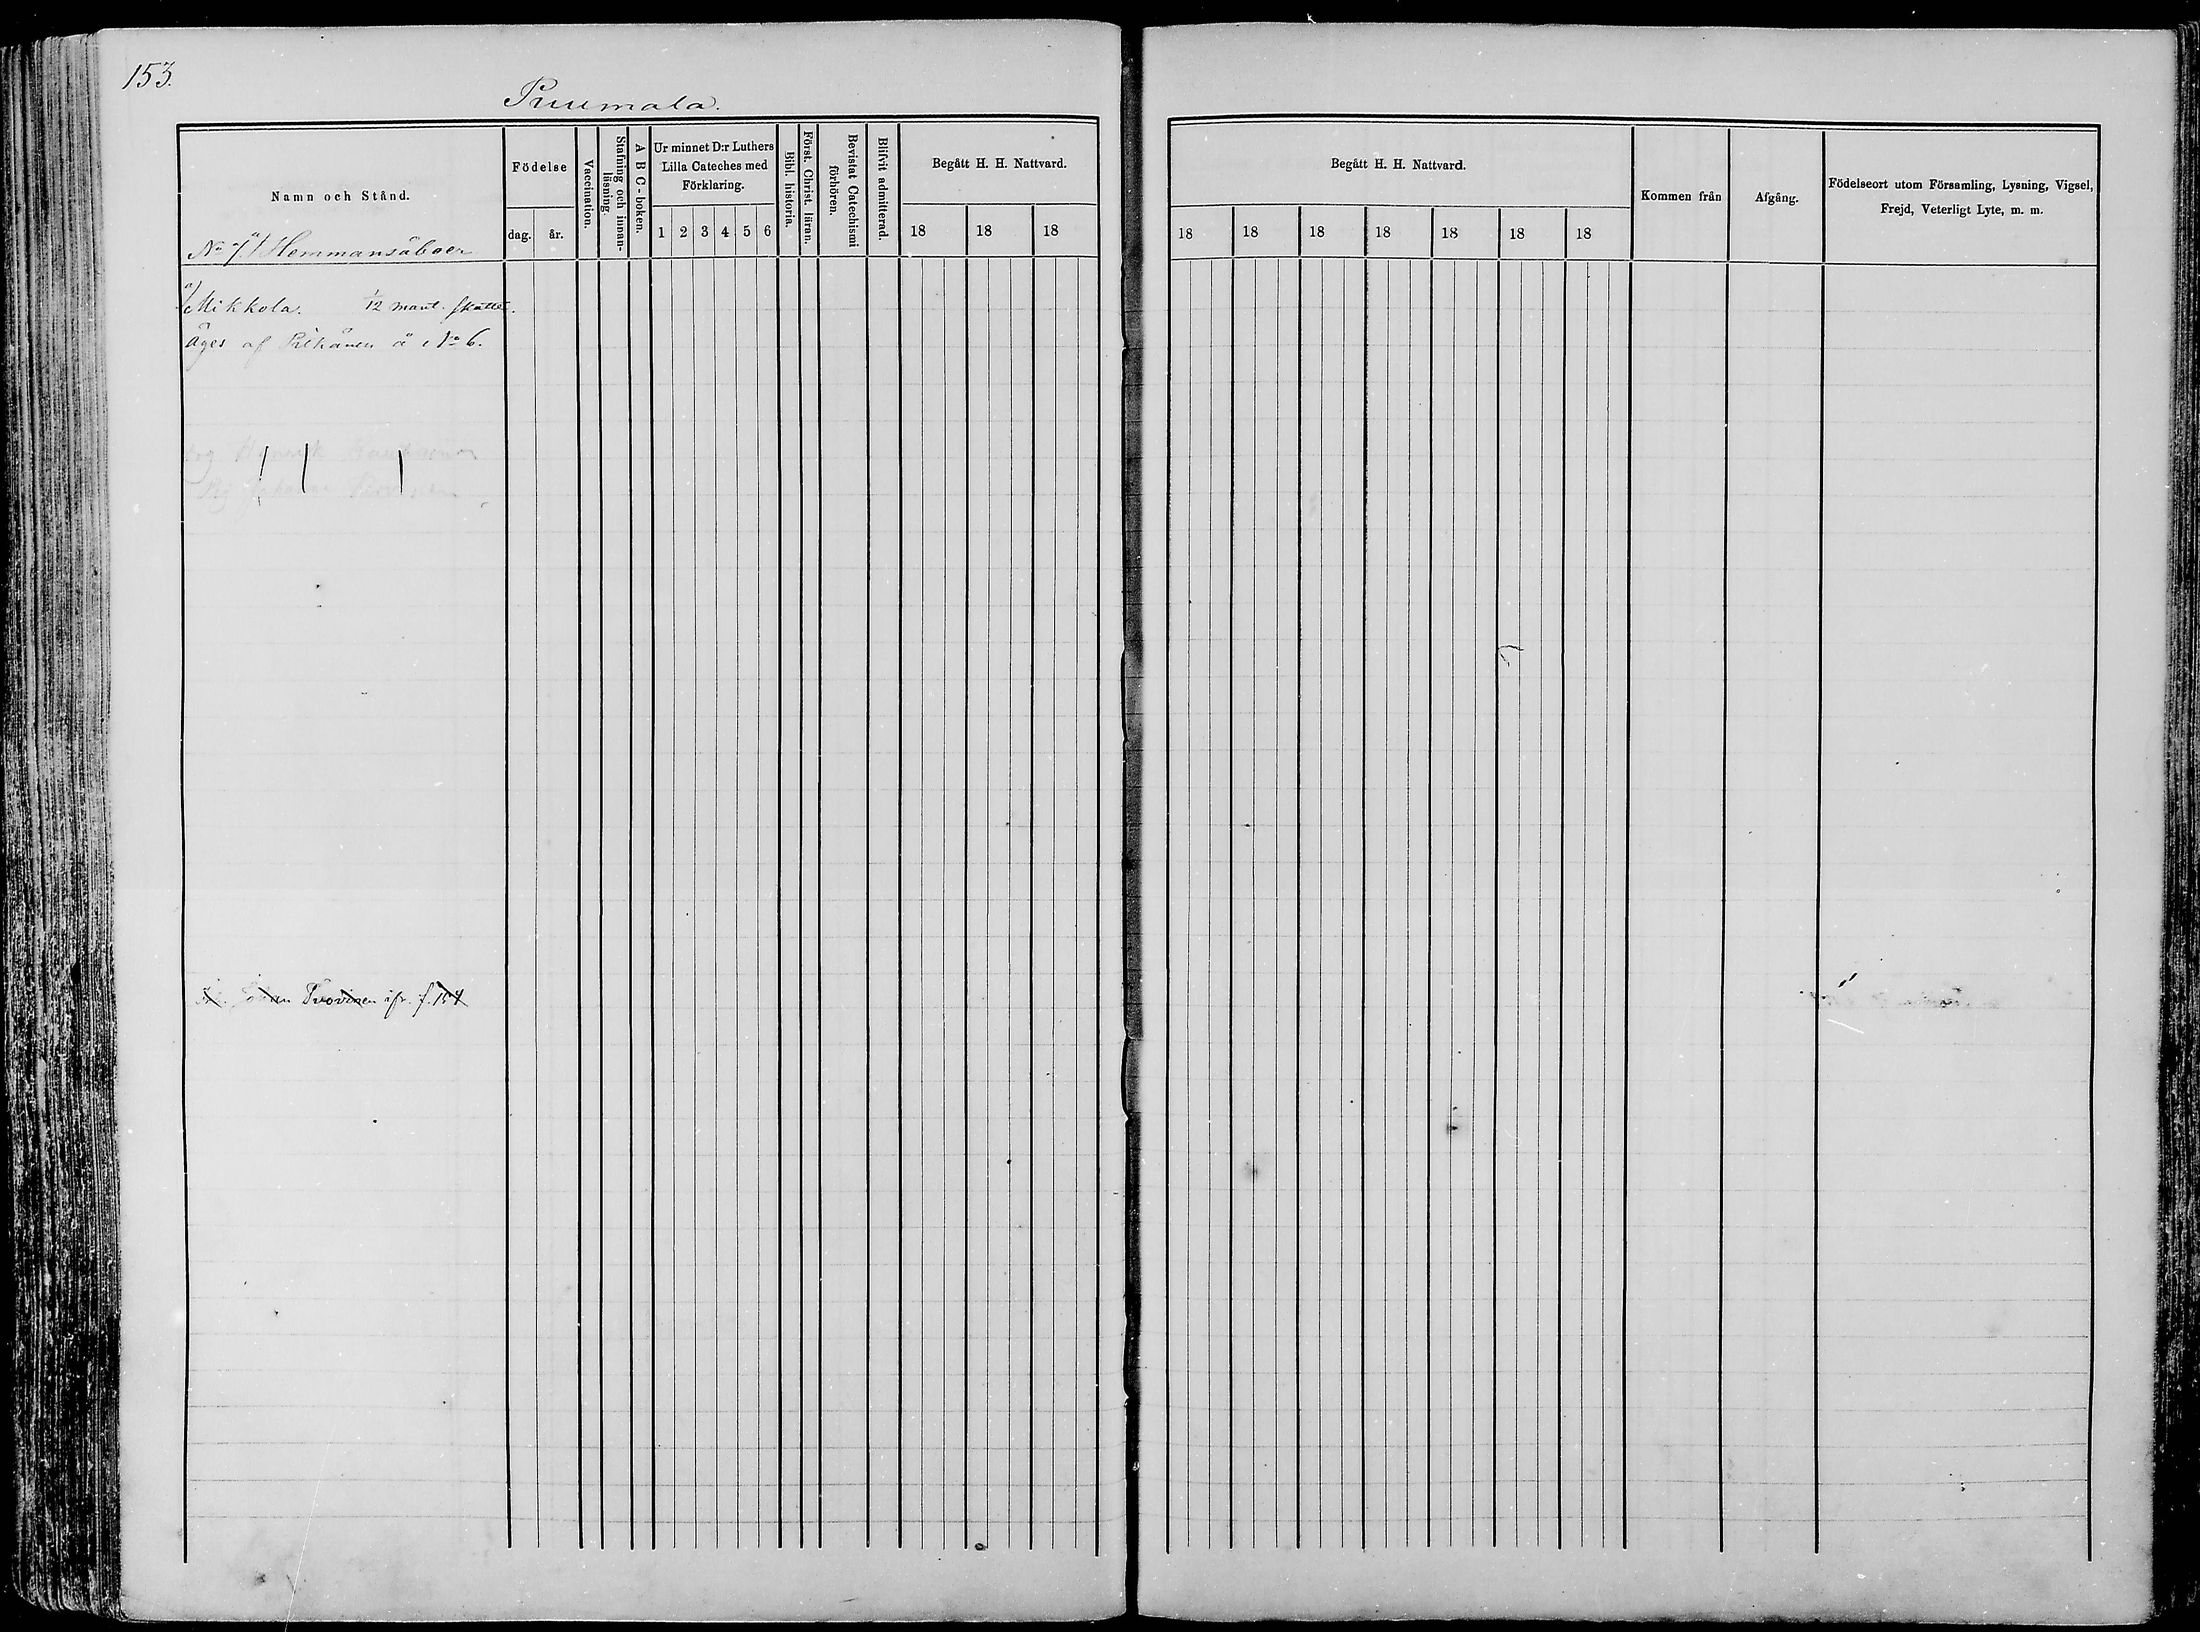 153.
Puumala.
Namn och Stånd.
Födelse
dag.
år.
Vaccination.
Stafning och innan-
läsning.
A B C-boken.
Ur minnet D:r Luthers
Lilla Cateches med
Förklaring.
1 2 3 4 5 6
Bibl. historia.
Först. Christ. läran.
Bevistat Catechismi
förhören.
Blifvit admitterad.
Begått H. H. Nattvard.
18 18 18
Begått H. H. Nattvard.
18 18 18 18 18 18 18
Kommen från
Afgång.
Födelseort utom Församling, Lysning, Vigsel,
Frejd, Veterligt Lyte, m. m.
No 7. Hemmansåboer
Mikkola. 1/12 mant. skatte.
Äges af å No 6.
Henrik
Johan ifr. f. 154